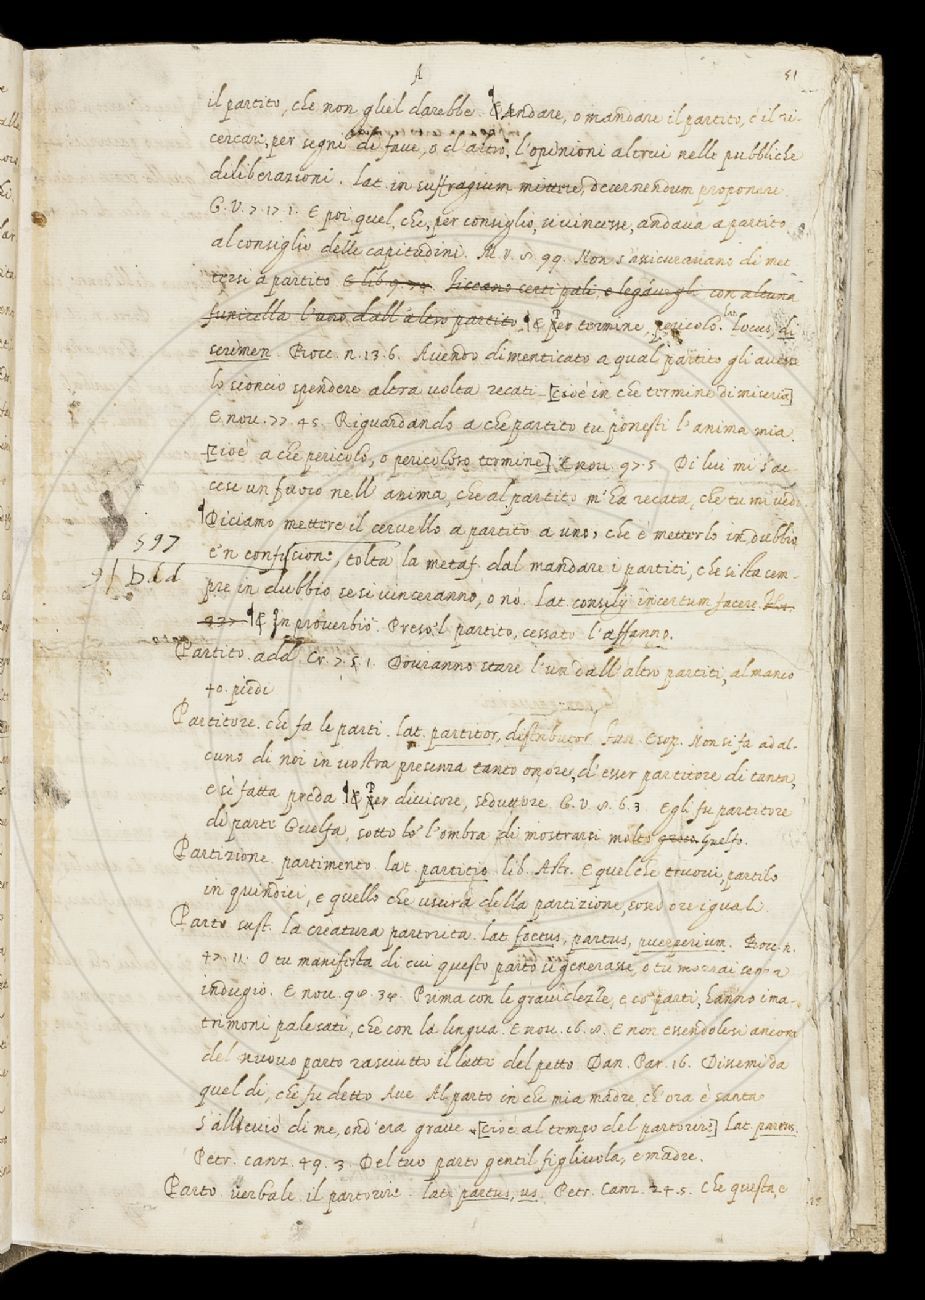 A 51
il partito, che non gliel darebbe. ¶ Andare, o mandare il partito, è il ri-
cercare, per segni di fave, o d'altro, l'opinioni altrui nelle pubbliche
diliberazioni. Lat. in suffragium mittere, decernendum proponere
G. V. 7. 17. 1. E poi quel, che, per consiglio, si vincesse, andava a partito
al consiglio delle capitudini. M. V. 8. 99. Non s'assicuravano di met
tersi a partito E lib 9 Ficcano certi pali, e legávogli con alcuna
funicella l'uno dall'altro partito ¶ Per termine, pericolo. lat Locus, di
scrimen. Bocc. n. 13. 6. Avendo dimenticato a qual partito gli avesse
lo sconcio spendere altra volta recati [cioè in che termine di miseria]
E nov. 77. 45. Riguardando a che partito tu ponesti l'anima mia.
[cioè a che pericolo, o pericoloso termine] E nov. 97. 5 Di lui mi s'ac
cese un fuoco nell'anima, che al partito m'ha recata, che tu mi vedi
Diciamo mettere il cervello a partito a uno, che è metterlo in dubbio
597
e 'n confusione, tolta la metaf. dal mandare i partiti, che si sta sem-
pre in dubbio se si vinceranno, o nò. Lat. consilij incertum facere.
¶ In proverbio. Preso 'l partito, cessato l'affanno.
Partito. add. Cr. 2. 5. 1. Dovranno stare l'un dall'altro partiti, almanco
40. piedi
Partitore. che fa le parti. lat. partitor, distributor. Fav. Esop. Non si fa ad al-
cuno di noi in vostra presenza tanto onore, d'esser partitore di tanta,
e sì fatta preda ¶ Per divisore, seduttore G. V. 8. 6. 3. Egli fu partitore
di parte Guelfa, sotto l'ombra di mostrarsi molto Guelfo.
Partizione. partimento lat. partitio. lib. Astr. E quel che truovi, partilo
in quindici, e quello che uscirà della partizione, sono ore iguali.
Parto sust. la creatura partorita. Lat. foetus, partus, puerperium. Bocc. n.
47. 11. O tu manifesta di cui questo parto si generasse, o tu morrai senza
indugio. E nov. 98. 34. Prima con le gravidezze, e co' parti, hanno i ma-
trimoni palesati, che con la lingua. E nov. 16. 8. E non essendolesi ancora
del nuovo parto rasciutto il latte del petto. Dan. Par. 16. Dissemi da
quel dì, che fu detto Ave Al parto in che mia madre, ch'ora è santa
S'allieviò di me, ond'era grave [cioè al tempo del partorire] Lat. partus.
Petr. canz. 49. 3. Del tuo parto gentil figliuola, e madre.
Parto verbale. il partorire. lat. partus, us. Petr. Canz. 24. 5. Che questa, e